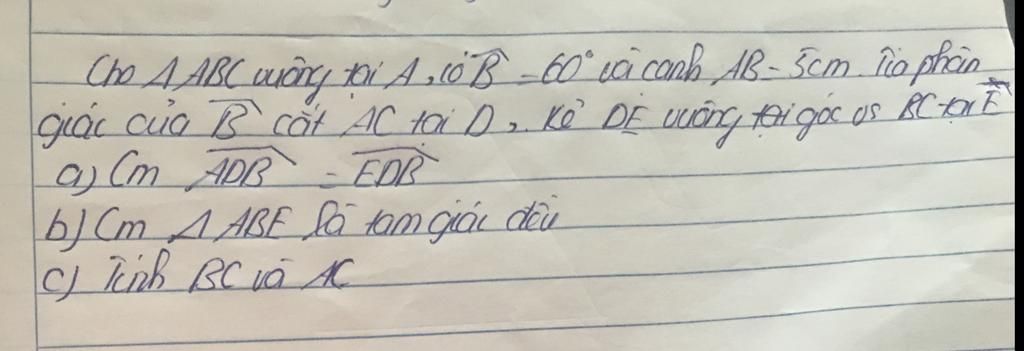 Cho Δ ABC vuông tại A, có B̂ = 60° và cạnh AB = 5cm. Tia phân
giác của B̂ cắt AC tại D, Kẻ DE vuông tại góc vs BC tại E
a) Cm ADB = EDB
b) Cm Δ ABE là tam giác đều
c) Tính BC và AC